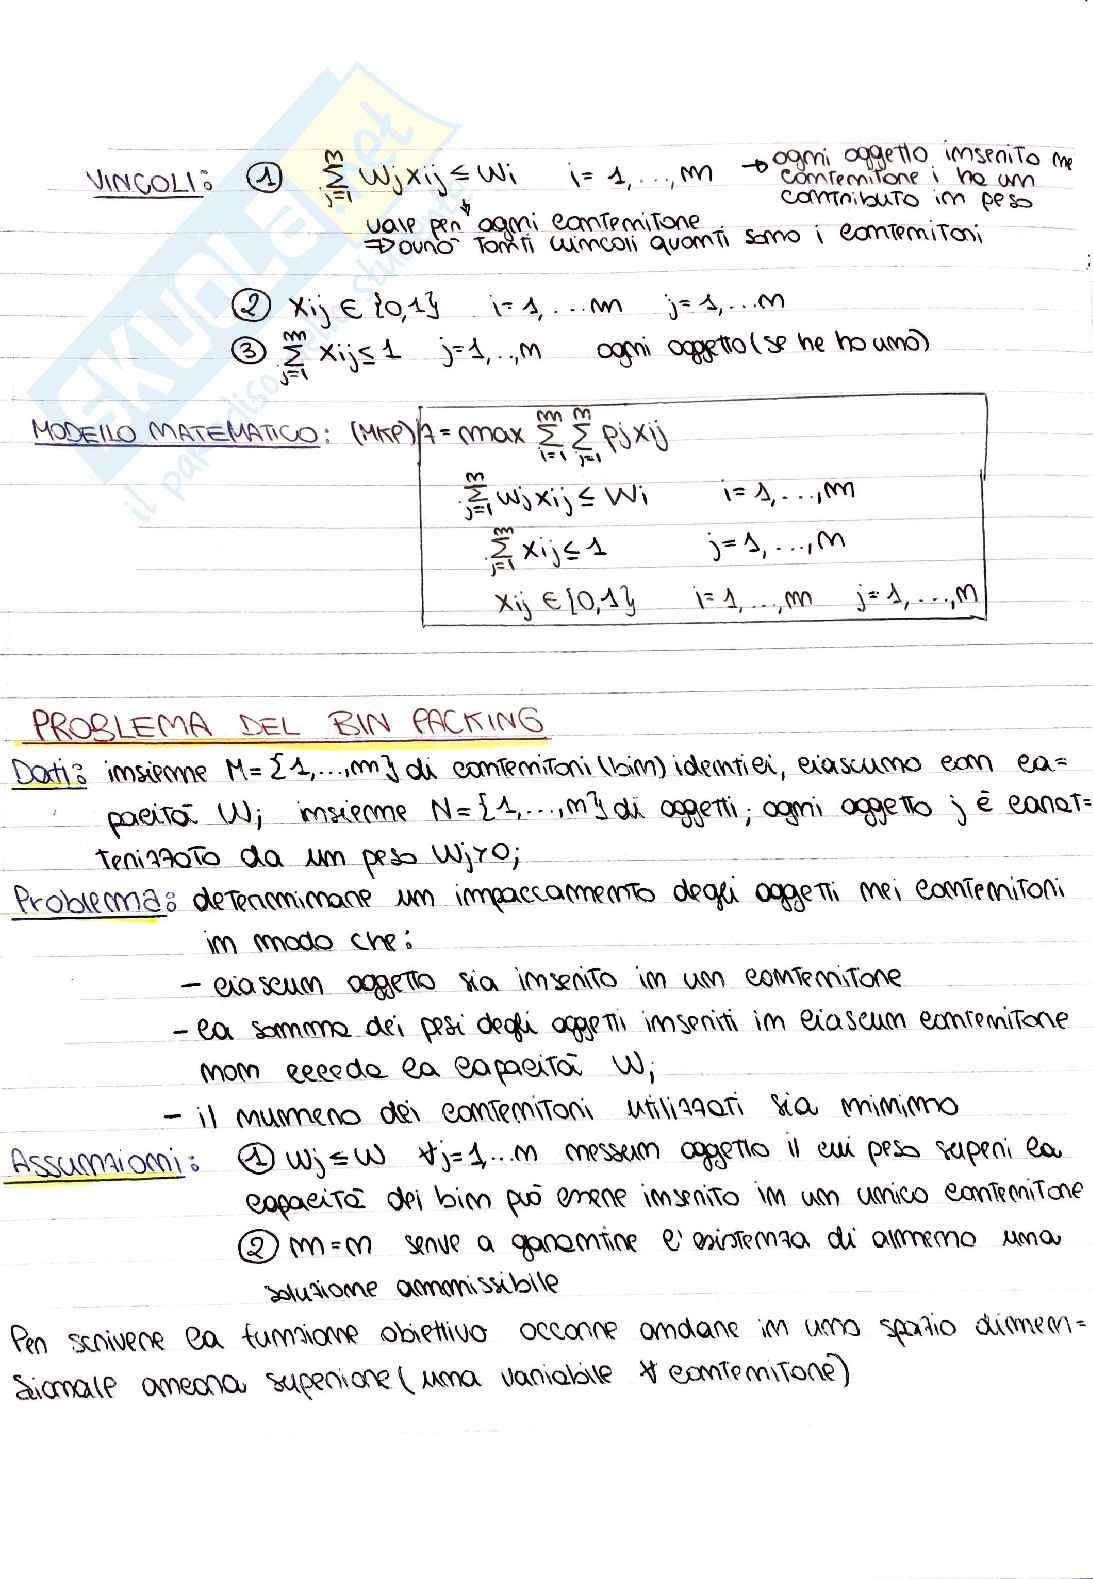 VINCOLI: ① Σ_{j=1}^{n} wj xij ≤ Wi i = 1,...,m → ogni oggetto inserito nel
contenitore i ha un
contributo in peso
vale per ogni contenitore
⇒ avrò tanti vincoli quanti sono i contenitori
② xij ∈ {0,1} i=1,...m j=1,...n
③ Σ_{j=1}^{m} xij ≤ 1 j=1,..,n ogni oggetto (se ne ho uno)
MODELLO MATEMATICO: (MKP) z = max Σ_{i=1}^{m} Σ_{j=1}^{n} pj xij
Σ_{j=1}^{n} wj xij ≤ Wi i = 1,...,m
Σ_{j=1}^{m} xij ≤ 1 j = 1,...,n
xij ∈ {0,1} i = 1,...,m j = 1,...,n
PROBLEMA DEL BIN PACKING
Dati: insieme M = {1,...,m} di contenitori (bin) identici, ciascuno con ca=
pacità W; insieme N = {1,...,n} di oggetti; ogni oggetto j è carat=
terizzato da un peso wj>0;
Problema: determinare un impaccamento degli oggetti nei contenitori
in modo che:
- ciascun oggetto sia inserito in un contenitore
- la somma dei pesi degli oggetti inseriti in ciascun contenitore
non ecceda la capacità W;
- il numero dei contenitori utilizzati sia minimo
Assunzioni: ① wj ≤ W ∀j=1,...n nessun oggetto il cui peso superi la
capacità dei bin può essere inserito in un unico contenitore
② m = n serve a garantire l'esistenza di almeno una
soluzione ammissibile
Per scrivere la funzione obiettivo occorre andare in uno spazio dimen=
sionale ancora superiore (una variabile ∀ contenitore)
SKUOLA.net
il paradiso dello studente